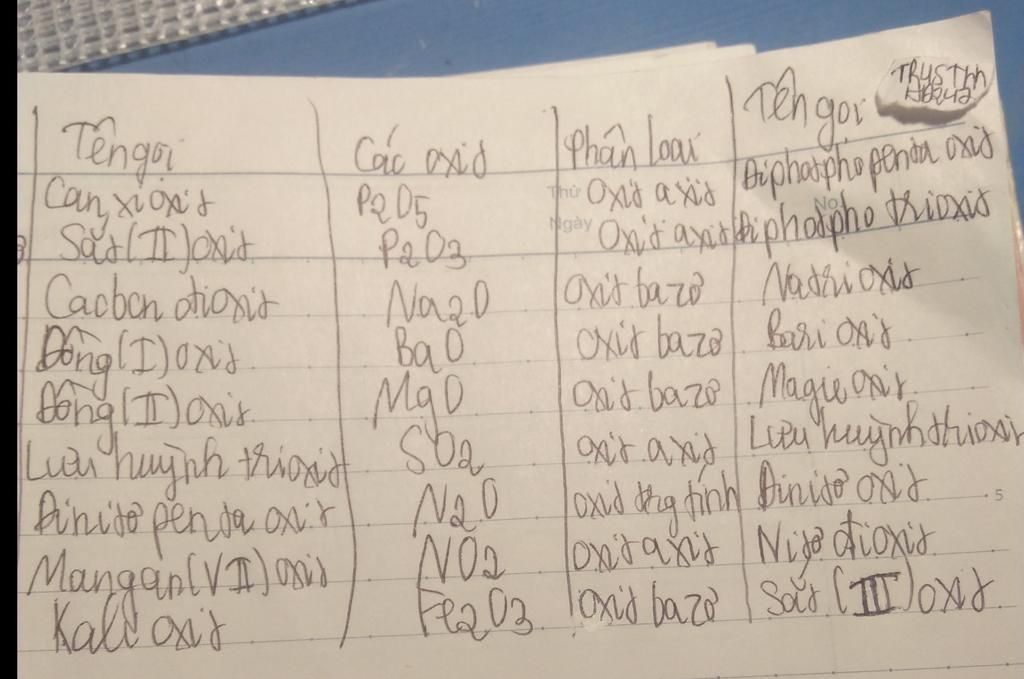 Tên gọi Các oxit Phân loại Tên gọi
TRUSTnn
Canxi oxit P2O5 Thứ Oxit axit Điphotpho penta oxit
Sắt (II) oxit P2O3 Ngày Oxit axit Điphotpho trioxit No.
Cacbon đioxit Na2O oxit bazơ Natri oxit
Đồng (I) oxit BaO oxit bazơ Bari oxit
Đồng (II) oxit MgO oxit bazơ Magie oxit
Lưu huỳnh trioxit SO2 oxit axit Lưu huỳnh trioxit
Đinitơ penta oxit N2O oxit trg tính Đinitơ oxit 5
Mangan (VII) oxit NO2 oxit axit Nitơ đioxit
Kali oxit Fe2O3 oxit bazơ Sắt (III) oxit